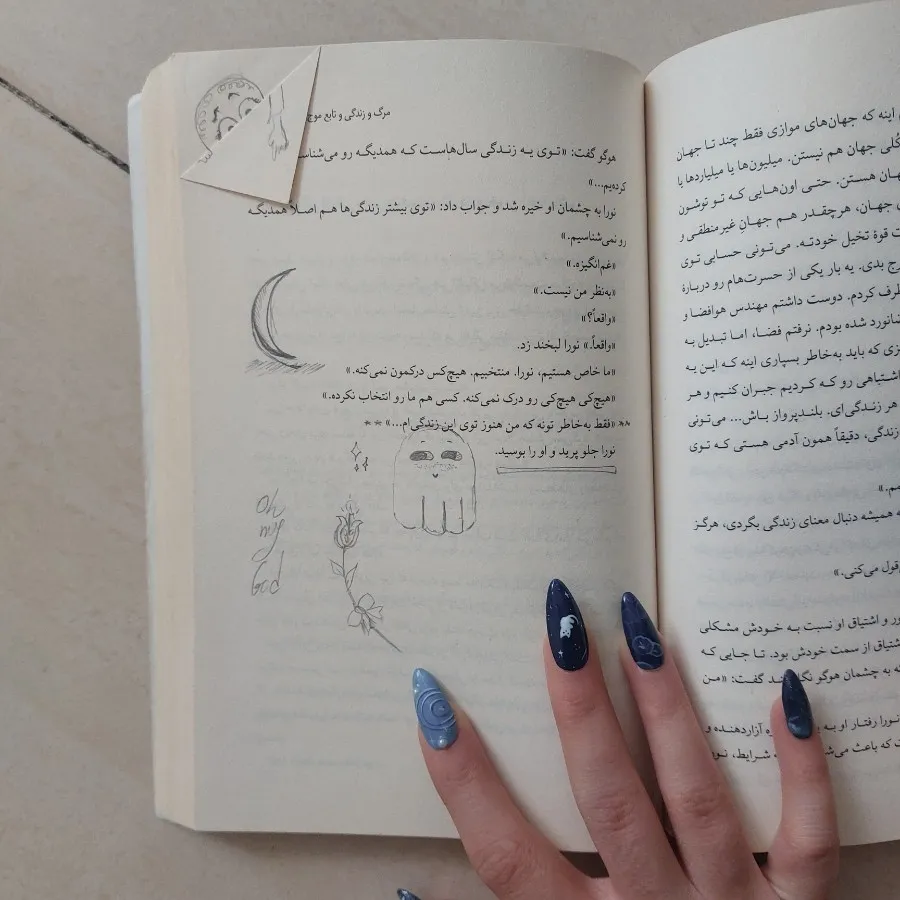 اینه که جهان‌های موازی فقط چند تا جهان
کُلی جهان هم نیستن. میلیون‌ها یا میلیاردها یا
هستن. حتی اون‌هایی که تو توشون
جهان، هرچقدر هم جهانِ غیرمنطقی و
قوهٔ تخیل خودته. می‌تونی حسابی توی
بدی. یه بار یکی از حسرت‌هام رو دربارهٔ
کردم. دوست داشتم مهندس هوافضا و
شده بودم. نرفتم فضا، اما تبدیل به
که باید به‌خاطر بسپاری اینه که این یه
اشتباهی رو که کردیم جبران کنیم و هر
هر زندگی‌ای. بلندپرواز باش... می‌تونی
زندگی، دقیقاً همون آدمی هستی که توی
همیشه دنبال معنای زندگی بگردی، هرگز
قول می‌کنی.»
و اشتیاق او نسبت به خودش مشکلی
اشتیاق از سمت خودش بود. تا جایی که
به چشمان هوگو گفت: «من
نورا رفتار او آزاردهنده و
که باعث شرایط،
مرگ و زندگی و تابع موج
هوگو گفت: «توی یه زندگی سال‌هاست که همدیگه رو
کرده‌یم...»
نورا به چشمان او خیره شد و جواب داد: «توی بیشتر زندگی‌ها هم اصلاً همدیگه
رو نمی‌شناسیم.»
«غم‌انگیزه.»
«به‌نظر من نیست.»
«واقعاً؟»
«واقعاً.» نورا لبخند زد.
«ما خاص هستیم، نورا. منتخبیم. هیچ‌کس درکمون نمی‌کنه.»
«هیچ‌کی هیچ‌کی رو درک نمی‌کنه. کسی هم ما رو انتخاب نکرده.»
**«فقط به‌خاطر تونه که من هنوز توی این زندگی‌ام...»**
نورا جلو پرید و او را بوسید.
Oh
my
God